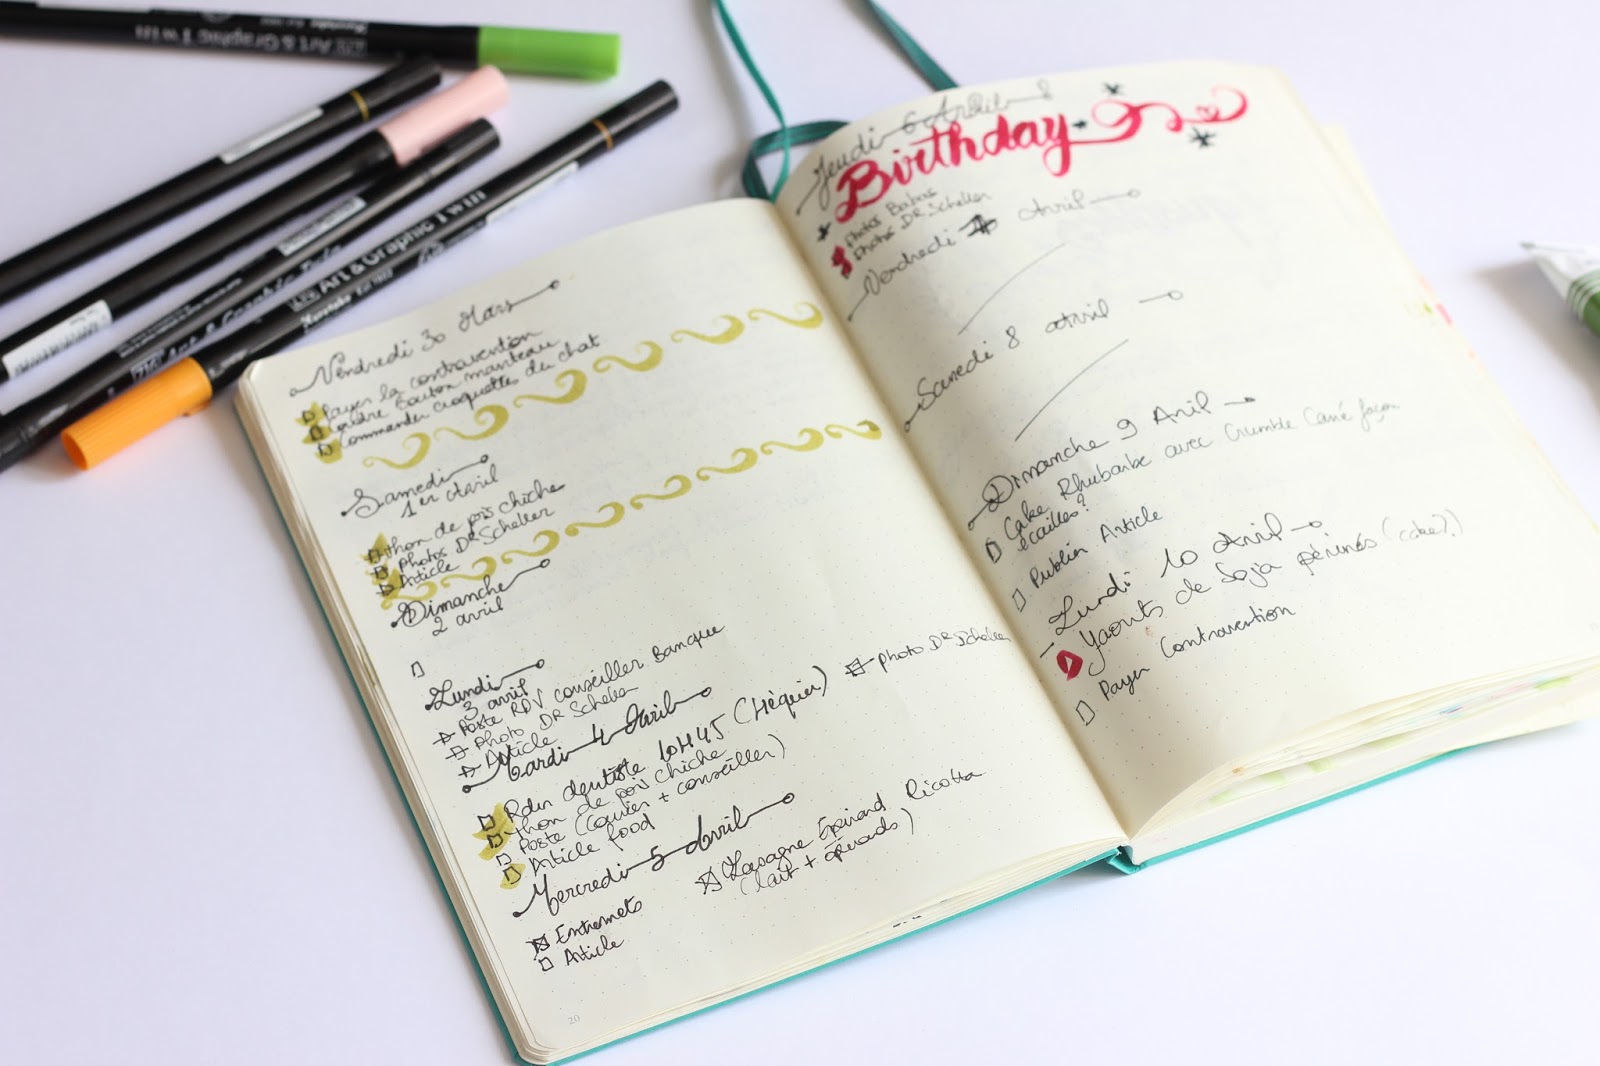 Art & Graphic Twin
Art & Graphic Twin
Vendredi 30 Mars
Payer la contravention
Coudre bouton manteau
Commander croquettes du chat
Samedi
1er Avril
thon de pois chiche
Photos Dr Scheller
Article
Dimanche
2 avril
Lundi
3 avril
Poste RDV conseiller Banque
Photo Dr Scheller
Article
Mardi 4 Avril
Rdv dentiste 10H45 (Héquier) Photo Dr Scheller
thon de pois chiche
Poste (Courier + conseiller)
Article food
Mercredi 5 Avril
Entremets
Lasagne Epinard Ricotta
(lait + épinards)
Article
20
Jeudi 6 Avril
Birthday
Photos
Photos Dr Scheller
Vendredi Avril
Samedi 8 Avril
Dimanche 9 Avril
Cake Rhubarbe avec Crumble Carré façon
écailles?
Publier Article
Lundi 10 Avril
Yaourts de Soja périmés (cake?)
Payer Contravention